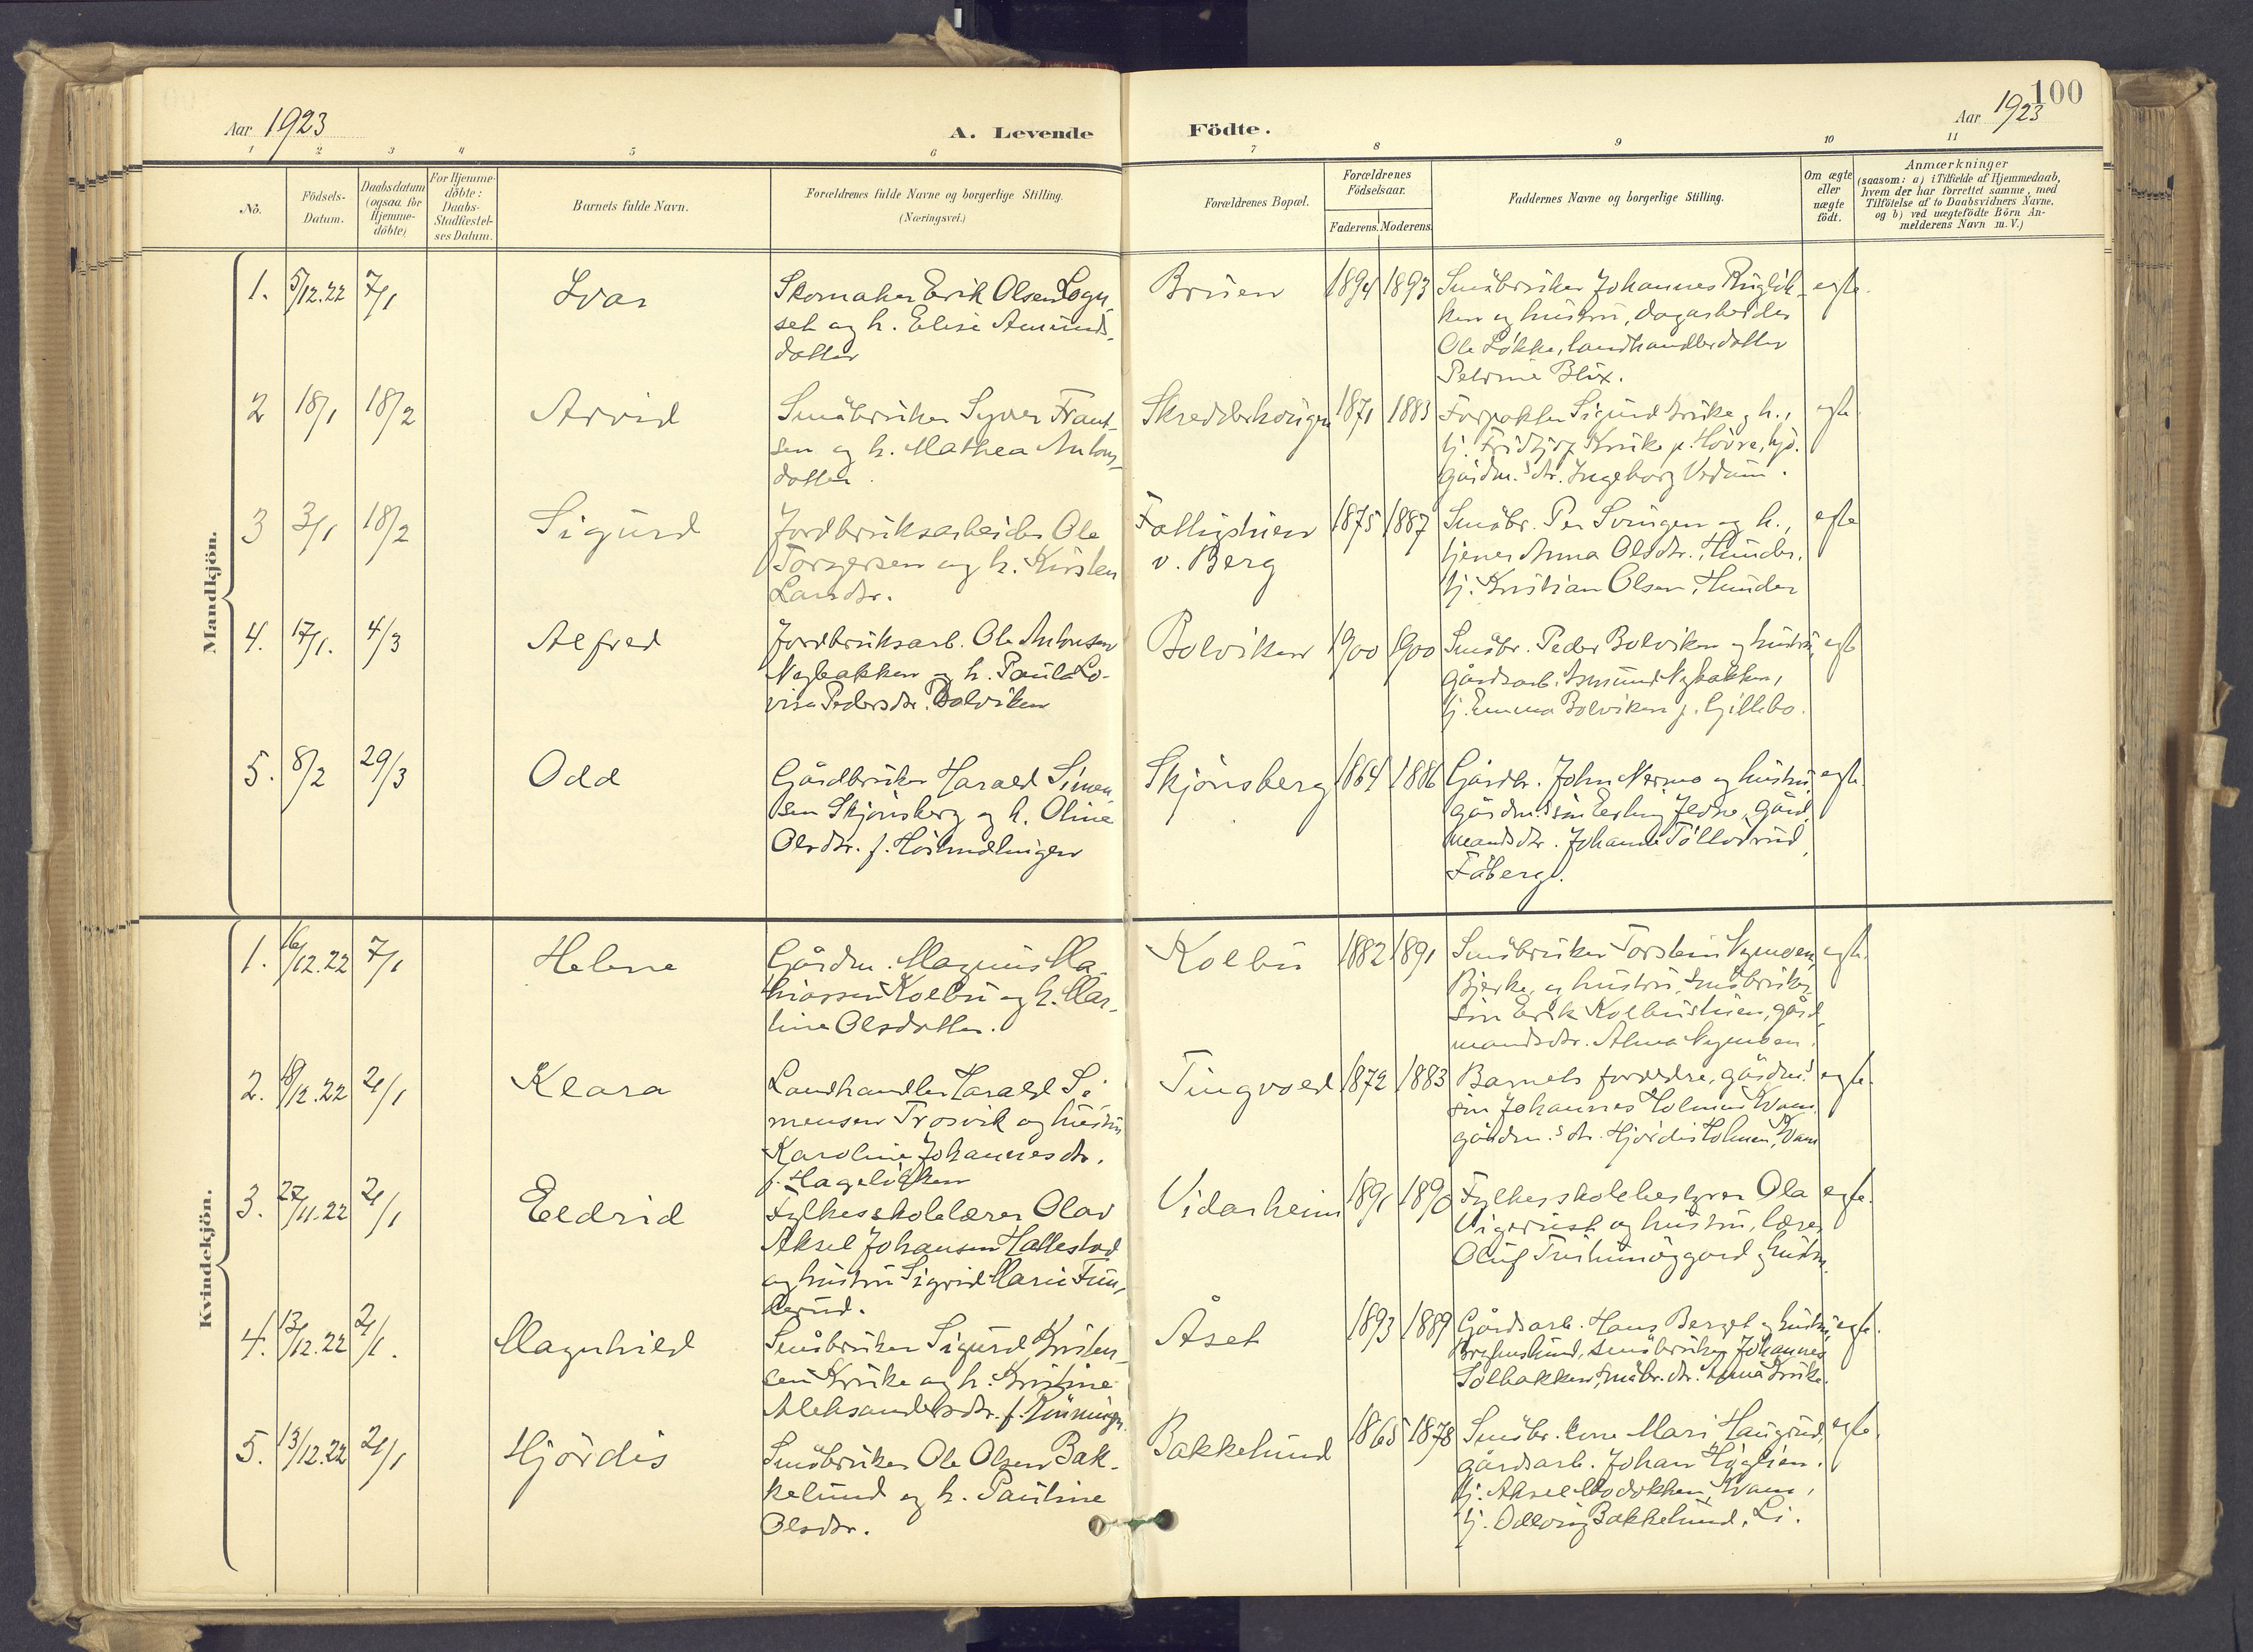 100
Aar 1923
A. Levende Födte.
Aar 1923
1 2 3 4 5 6 7 8 9 10 11
No.
Födsels-Datum.
Daabsdatum (ogsaa for Hjemme-döbte)
For Hjemme-döbte: Daabs-Stadfæstel-ses Datum.
Barnets fulde Navn.
Forældrenes fulde Navne og borgerlige Stilling.
(Næringsvei.)
Forældrenes Bopæl.
Forældrenes Födselsaar.
Faderens. Moderens.
Faddernes Navne og borgerlige Stilling.
Om ægte eller uægte födt.
Anmærkninger
(saasom: a) i Tilfælde af Hjemmedaab,
hvem der har forrettet samme, med
Tilföielse af to Daabsvidners Navne.
og b) ved uægtefödte Börn An-
melderens Navn m. V.)
Mandkjön.
1. 5/12.22 7/1 Ivar
Skomaker Erik Olsen
set og h. Elise Amunds-
datter
Bruen 1894 1893
Småbruker Johannes
ken og hustru, dagarbeider
Ole Løkke, landhandlerdatter
Petrine Blix.
egte.
2 18/1 18/2 Arvid
Småbruker Syver Frant-
sen og h. Mathea Antons-
datter.
Skredderhougen 1871 1883
Forpakter Sigurd Kruke og h.,
tj. Fridtjof Kruke p. Hovre,
gårdm.s dtr. Ingeborg Vedum.
egte
3 3/1 18/2 Sigurd
Jordbruksarbeider Ole
Torgersen og h. Kirsten
Larsdtr.
v. Berg 1875 1887
Småbr. Per Svingen og h.,
tjener Anna Olsdtr. Hunder,
tj. Kristian Olsen, Hunder
egte
4. 17/1. 4/3 Alfred
Jordbruksarb. Ole Antonsen
Nybakken og h. Paula Lo-
visa Pedersdtr. Bolviken
Bolviken 1900 1900
Småbr. Peder Bolviken og hustru,
gårdsarb. Amund Nybakken,
tj. Emma Bolviken p. Gillebo.
egte
5. 8/2 29/3 Odd
Gårdbruker Harald Simen-
sen Skjønsberg og h. Oline
Olsdtr. f.
Skjønsberg 1864 1886
Gårdbr. John Nermo og hustru,
gårdm.s søn Erling Jedne, gård-
mandsdtr. Johanne
Fåberg.
egte.
Kvindekjön.
1. 16/12.22 7/1 Helene
Gårdm. Magnus Ma-
thiassen Kolbu og h. Mar-
tine Olsdatter.
Kolbu 1882 1891
Småbruker Torstein Nymoen,
Bjerke, og hustru, småbruker-
søn Erik Kolbustuen, gård-
mandsdtr. Alma Nymoen.
egte.
2. 18/12.22 21/1 Klara
Landhandler Harald Si-
mensen Trosvik og hustru
Karoline Johannesdtr.
f. Hageløkken
Tingvold 1872 1883
Barnets foreldre, gårdm.s
søn Johannes Holmen, Vam,
gårdm.s dtr. Hjørdis Holmen, Vam
egte.
3. 27/11.22 21/1 Eldrid
Fylkesskolelærer Olav
Aksel Johansen Hallestad
og hustru Sigrid Marie Fun-
derud.
Vidarheim 1891 1890
Fylkesskolebestyrer Ola
Vigerust og hustru, lærer
Oluf og hustru.
egte.
4. 13/12.22 21/1. Magnhild
Småbruker Sigurd Kristen-
sen Kruke og h. Kristine
Aleksandersdtr. f.
Åset 1893 1889
Gårdsarb. Hans Berget og hustru,
småbruker Johannes
Solbakken, småbr. dtr. Anna Kruke.
egte.
5. 13/12.22 21/1 Hjørdis
Småbruker Ole Olsen Bak-
kelund og h. Pauline
Olsdtr.
Bakkelund 1865 1878
Småbr. kone Mari Haugrud,
gårdsarb. Johan
tj. Aksel Vam,
tj. Oddvin Bakkelund, Li.
egte.